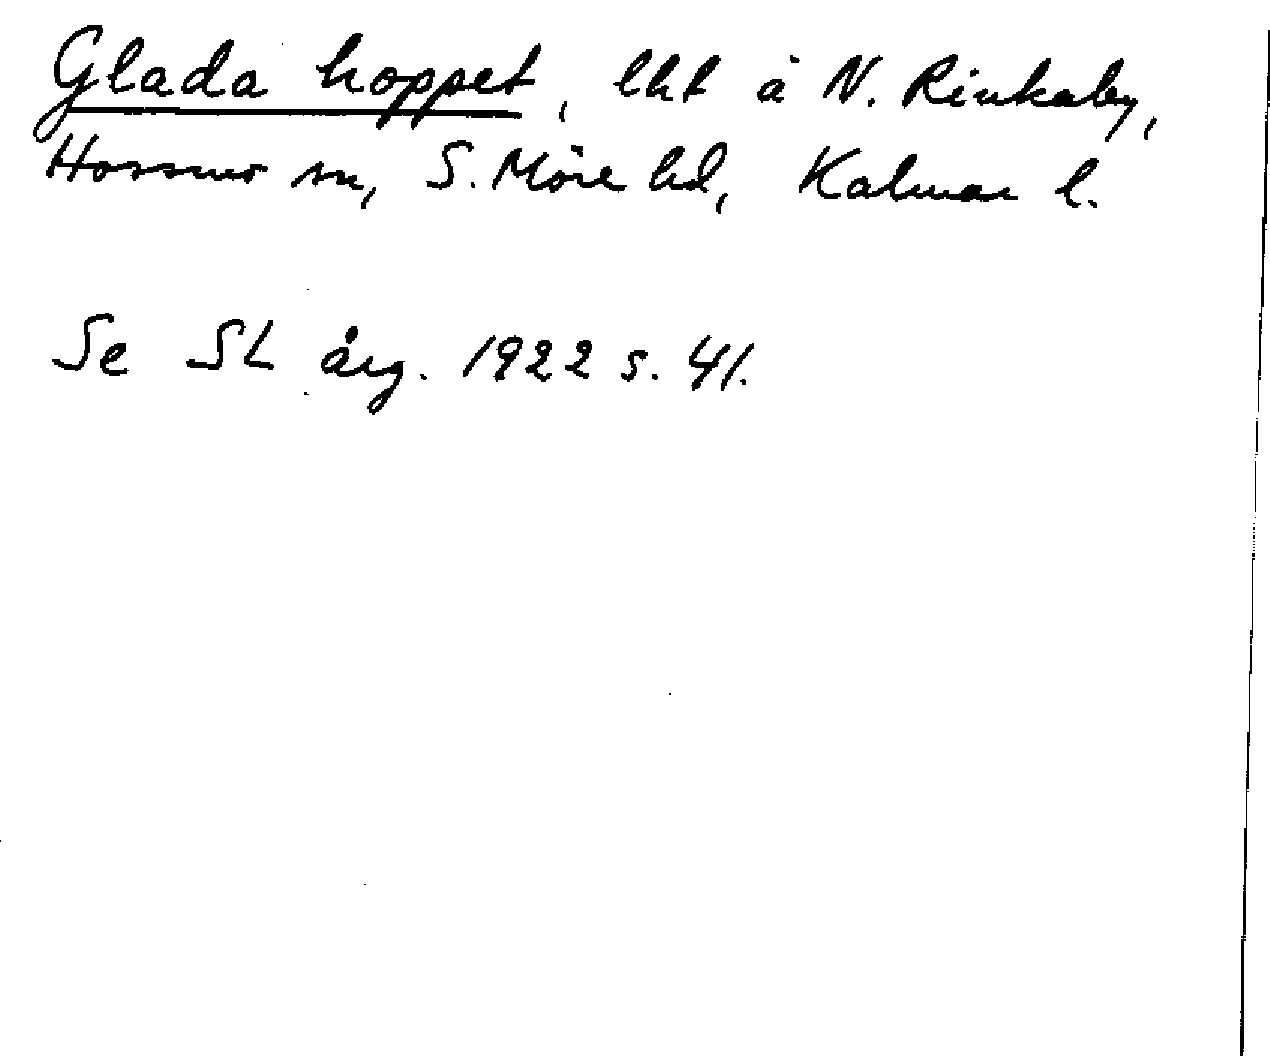 Glada hoppet, lht å N. Rinkaby,
Hossmo sn, S. Möre hd, Kalmar l.
Se SL årg. 1922 s. 41.